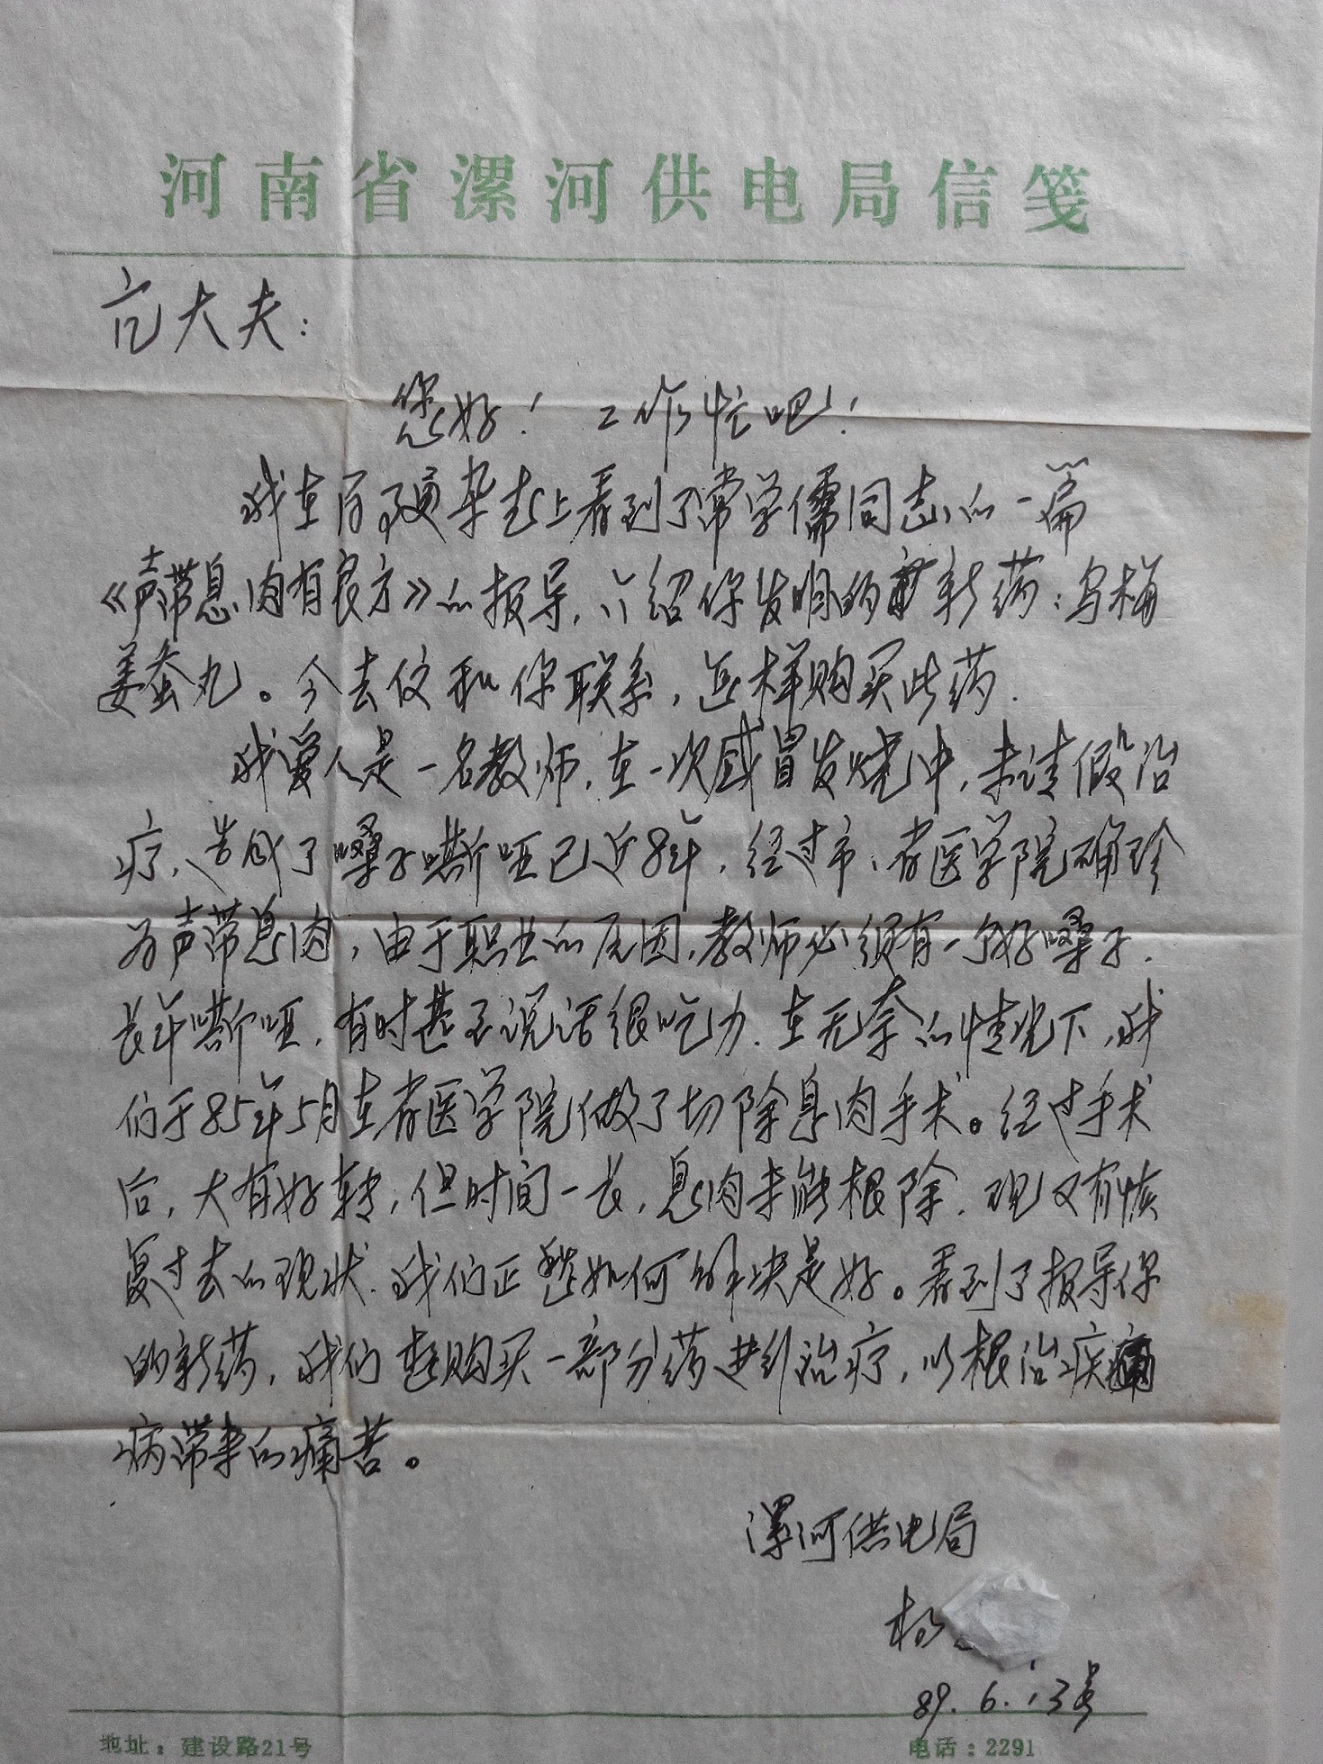 河南省漯河供电局信笺
大夫：
您好！工作忙吧！
我在百项杂志上看到了常学儒同志的一篇
《声带息肉有良方》的报导，介绍你发明的新药：乌梅
姜蚕丸。今去信和你联系，怎样购买此药．
我爱人是一名教师，在一次感冒发烧中，未请假治
疗、造成了嗓子嘶哑已近8年，经过市、省医学院确珍
为声带息肉，由于职业的原因，教师必须有一个好嗓子．
长年嘶哑，有时甚至说话很吃力．在无奈的情况下，我
们于85年5月在省医学院做了切除息肉手术。经过手术
后，大有好转，但时间一长，息肉未能根除．现又有恢
复过去的现状．我们正愁如何解决是好。看到了报导你
的新药，我们想购买一部分药进行治疗，以根治疾
病带来的痛苦。
漯河供电局
杨
89.6.13号
地址：建设路21号 电话：2291